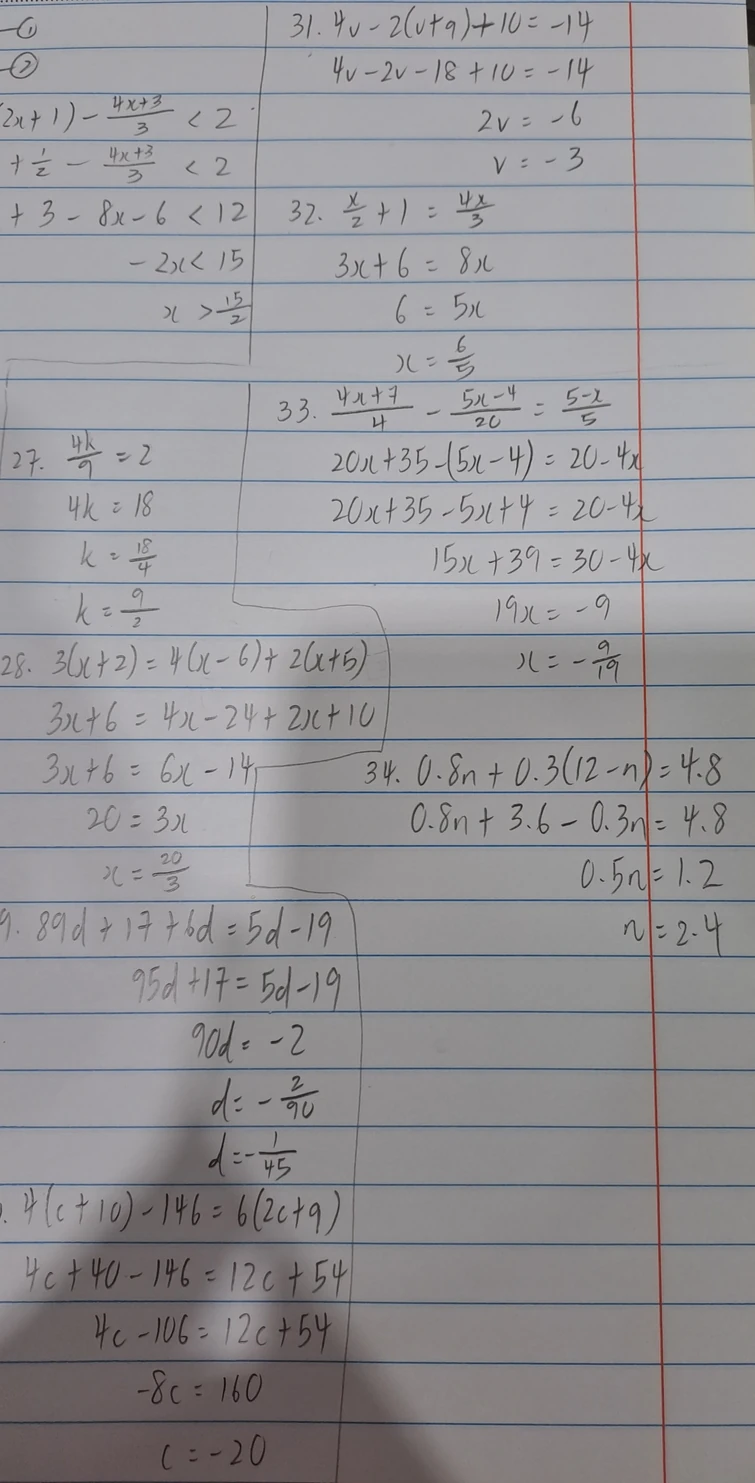 ①
②
2x+1) - \frac{4x+3}{3} < 2
+ \frac{1}{2} - \frac{4x+3}{3} < 2
+ 3 - 8x - 6 < 12
- 2x < 15
x > \frac{15}{2}
27. \frac{4k}{9} = 2
4k = 18
k = \frac{18}{4}
k = \frac{9}{2}
28. 3(x+2) = 4(x-6) + 2(x+5)
3x+6 = 4x - 24 + 2x + 10
3x+6 = 6x - 14
20 = 3x
x = \frac{20}{3}
9. 89d + 17 + 6d = 5d - 19
95d + 17 = 5d - 19
90d = -2
d = -\frac{2}{90}
d = -\frac{1}{45}
. 4(c+10) - 146 = 6(2c+9)
4c + 40 - 146 = 12c + 54
4c - 106 = 12c + 54
-8c = 160
c = -20
31. 4v - 2(v+9) + 10 = -14
4v - 2v - 18 + 10 = -14
2v = -6
v = -3
32. \frac{x}{2} + 1 = \frac{4x}{3}
3x + 6 = 8x
6 = 5x
x = \frac{6}{5}
33. \frac{4x+7}{4} - \frac{5x-4}{20} = \frac{5-x}{5}
20x + 35 - (5x - 4) = 20 - 4x
20x + 35 - 5x + 4 = 20 - 4x
15x + 39 = 30 - 4x
19x = -9
x = -\frac{9}{19}
34. 0.8n + 0.3(12 - n) = 4.8
0.8n + 3.6 - 0.3n = 4.8
0.5n = 1.2
n = 2.4